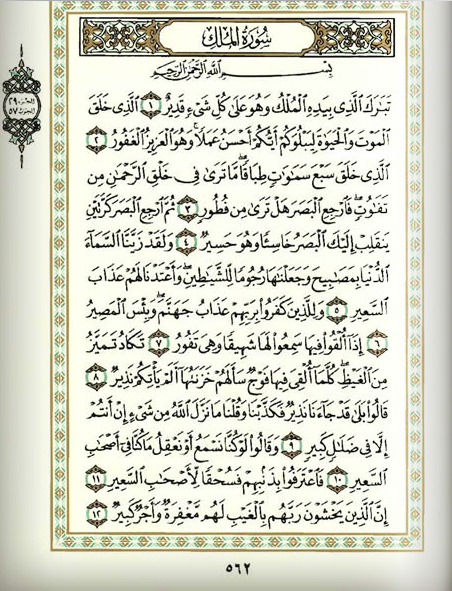 سُورَةُ المُلْكِ
بِسْمِ اللَّهِ الرَّحْمَنِ الرَّحِيمِ
الجزء ٢٩
الحزب ٥٧
تَبَٰرَكَ ٱلَّذِى بِيَدِهِ ٱلْمُلْكُ وَهُوَ عَلَىٰ كُلِّ شَىْءٍ قَدِيرٌ ١ ٱلَّذِى خَلَقَ
ٱلْمَوْتَ وَٱلْحَيَوٰةَ لِيَبْلُوَكُمْ أَيُّكُمْ أَحْسَنُ عَمَلًا وَهُوَ ٱلْعَزِيزُ ٱلْغَفُورُ ٢
ٱلَّذِى خَلَقَ سَبْعَ سَمَٰوَٰتٍ طِبَاقًا مَّا تَرَىٰ فِى خَلْقِ ٱلرَّحْمَٰنِ مِن
تَفَٰوُتٍ فَٱرْجِعِ ٱلْبَصَرَ هَلْ تَرَىٰ مِن فُطُورٍ ٣ ثُمَّ ٱرْجِعِ ٱلْبَصَرَ كَرَّتَيْنِ
يَنقَلِبْ إِلَيْكَ ٱلْبَصَرُ خَاسِئًا وَهُوَ حَسِيرٌ ٤ وَلَقَدْ زَيَّنَّا ٱلسَّمَآءَ
ٱلدُّنْيَا بِمَصَٰبِيحَ وَجَعَلْنَٰهَا رُجُومًا لِّلشَّيَٰطِينِ وَأَعْتَدْنَا لَهُمْ عَذَابَ
ٱلسَّعِيرِ ٥ وَلِلَّذِينَ كَفَرُوا۟ بِرَبِّهِمْ عَذَابُ جَهَنَّمَ وَبِئْسَ ٱلْمَصِيرُ
٦ إِذَآ أُلْقُوا۟ فِيهَا سَمِعُوا۟ لَهَا شَهِيقًا وَهِىَ تَفُورُ ٧ تَكَادُ تَمَيَّزُ
مِنَ ٱلْغَيْظِ كُلَّمَآ أُلْقِىَ فِيهَا فَوْجٌ سَأَلَهُمْ خَزَنَتُهَآ أَلَمْ يَأْتِكُمْ نَذِيرٌ ٨
قَالُوا۟ بَلَىٰ قَدْ جَآءَنَا نَذِيرٌ فَكَذَّبْنَا وَقُلْنَا مَا نَزَّلَ ٱللَّهُ مِن شَىْءٍ إِنْ أَنتُمْ
إِلَّا فِى ضَلَٰلٍ كَبِيرٍ ٩ وَقَالُوا۟ لَوْ كُنَّا نَسْمَعُ أَوْ نَعْقِلُ مَا كُنَّا فِىٓ أَصْحَٰبِ
ٱلسَّعِيرِ ١٠ فَٱعْتَرَفُوا۟ بِذَنۢبِهِمْ فَسُحْقًا لِّأَصْحَٰبِ ٱلسَّعِيرِ ١١
إِنَّ ٱلَّذِينَ يَخْشَوْنَ رَبَّهُم بِٱلْغَيْبِ لَهُم مَّغْفِرَةٌ وَأَجْرٌ كَبِيرٌ ١٢
٥٦٢